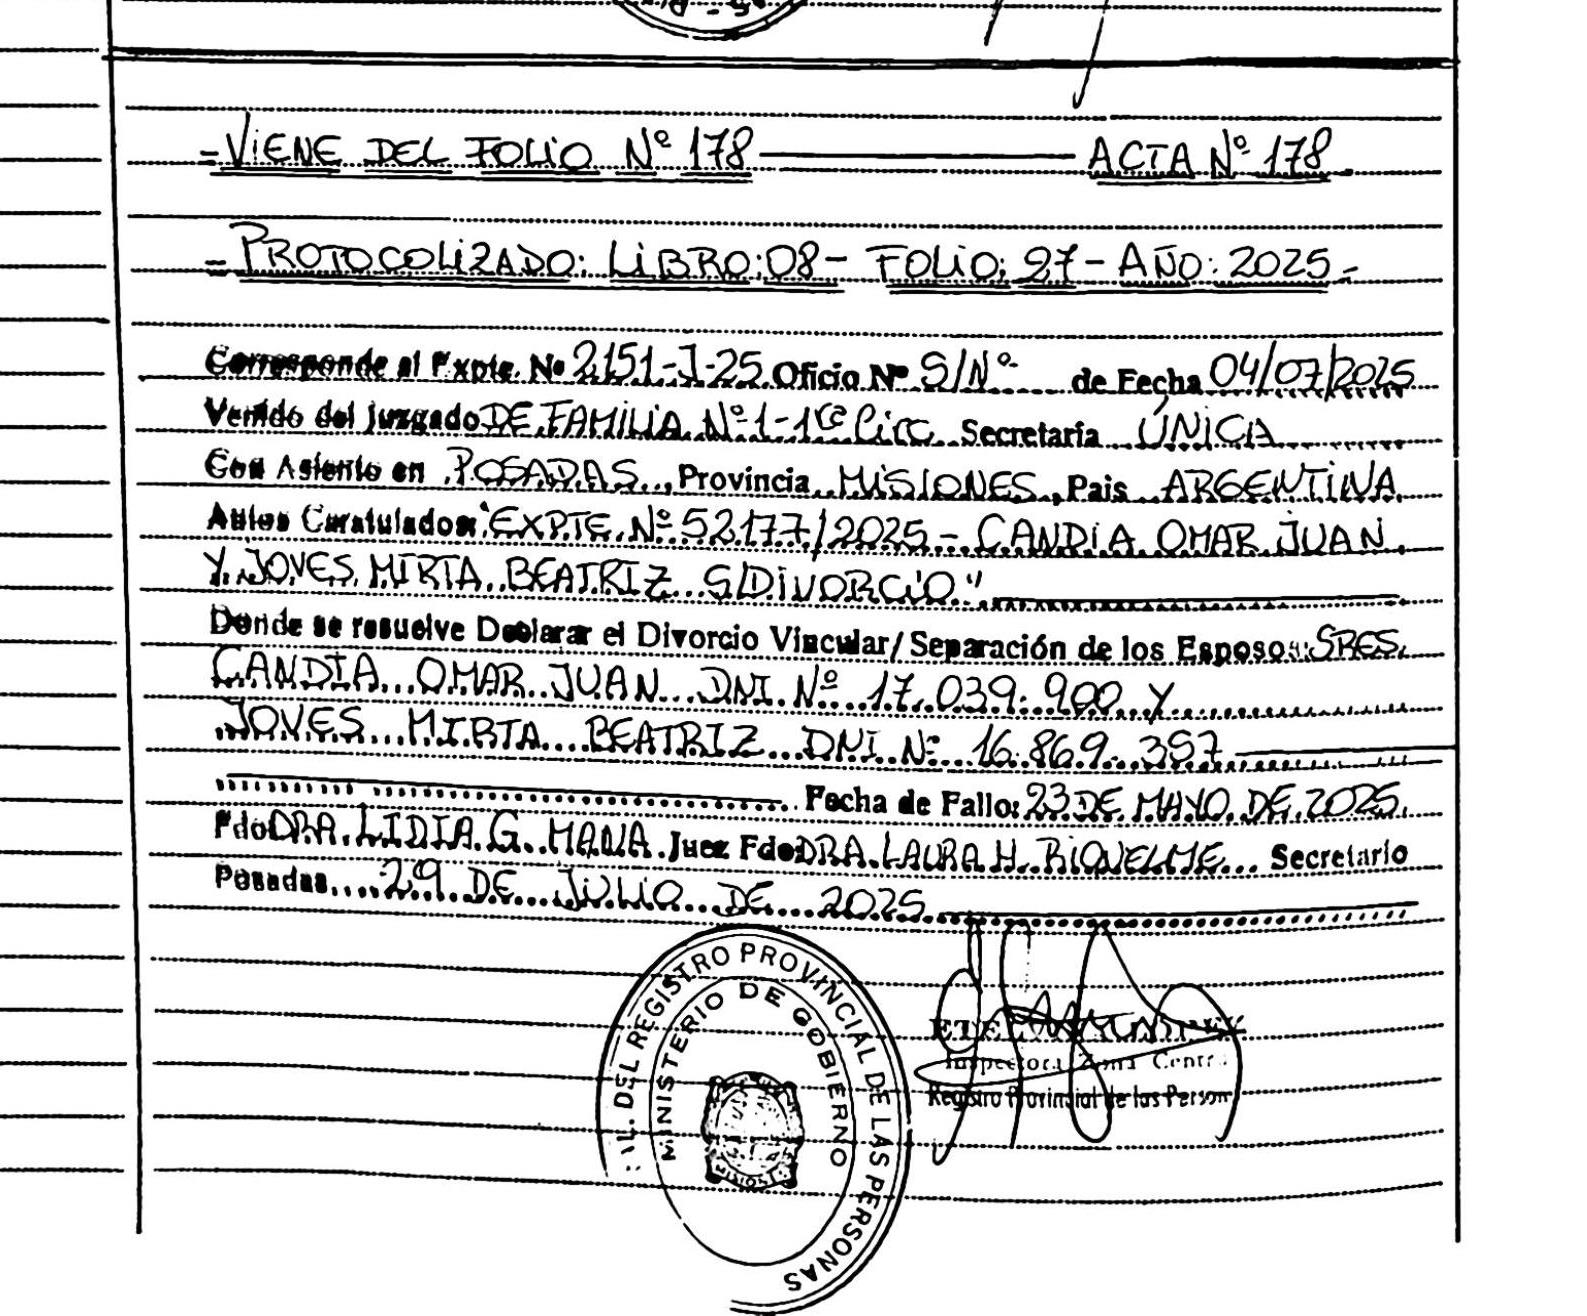 =VIENE DEL FOLIO Nº 178 ACTA Nº 178.
=PROTOCOLIZADO: LIBRO: 08- FOLIO: 27- AÑO: 2025.-
Corresponde al Expte. Nº 2151-J-25 Oficio Nº S/Nº de Fecha 04/07/2025
Venido del Juzgado DE FAMILIA Nº1-1ra Circ. Secretaria ÚNICA
Con Asiento en POSADAS, Provincia MISIONES, Pais ARGENTINA
Autos Caratulados: "EXPTE. Nº 52177/2025 - CANDIA OMAR JUAN
Y JOVES MIRTA BEATRIZ S/DIVORCIO"
Donde se resuelve Declarar el Divorcio Vincular/ Separación de los Esposos: SRES.
CANDIA OMAR JUAN DNI Nº 17.039.900 Y
JOVES MIRTA BEATRIZ DNI Nº 16.869.357
Fecha de Fallo: 23 DE MAYO DE 2025.
Fdo DRA. LIDIA G. MANA Juez Fdo DRA. LAURA H. RIQUELME Secretario
Posadas 29 DE JULIO DE 2025
DEL REGISTRO PROVINCIAL DE LAS PERSONAS
MINISTERIO DE GOBIERNO
Inspectora Zona Centr
Registro Provincial de las Person